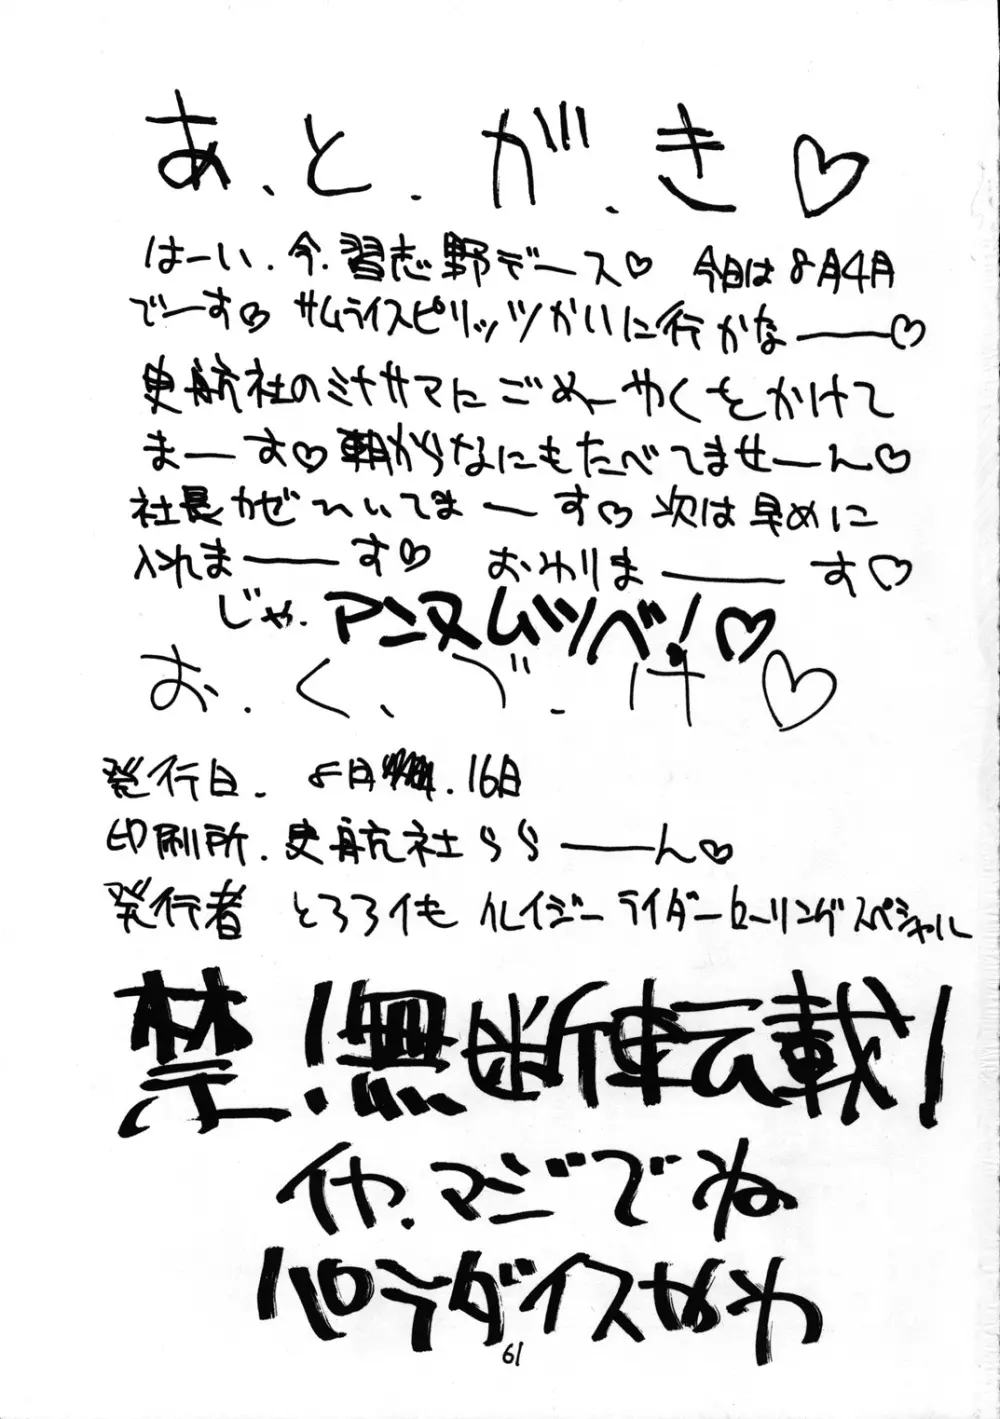 あ、と、が、き♡
はーい、今、習志野デース♡ 今日は8月4日
でーす♡ サムライスピリッツかいに行かなーー♡
史航社のミナサマにごめーやくをかけて
まーーす♡ 朝からなにもたべてませーーん♡
社長かぜひいてまーーす♡ 次は早めに
入れまーーーす♡ おわりまーーーす♡
じゃ、アンヌムツベ!♡
お、く、づ、け♡
発行日、8月 16日
印刷所、史航社ららーーーん♡
発行者 とろろイモ クレイジーライダーローリングスペシャル
禁!無断転載!
イヤ、マジでね
パラダイスやわ
61